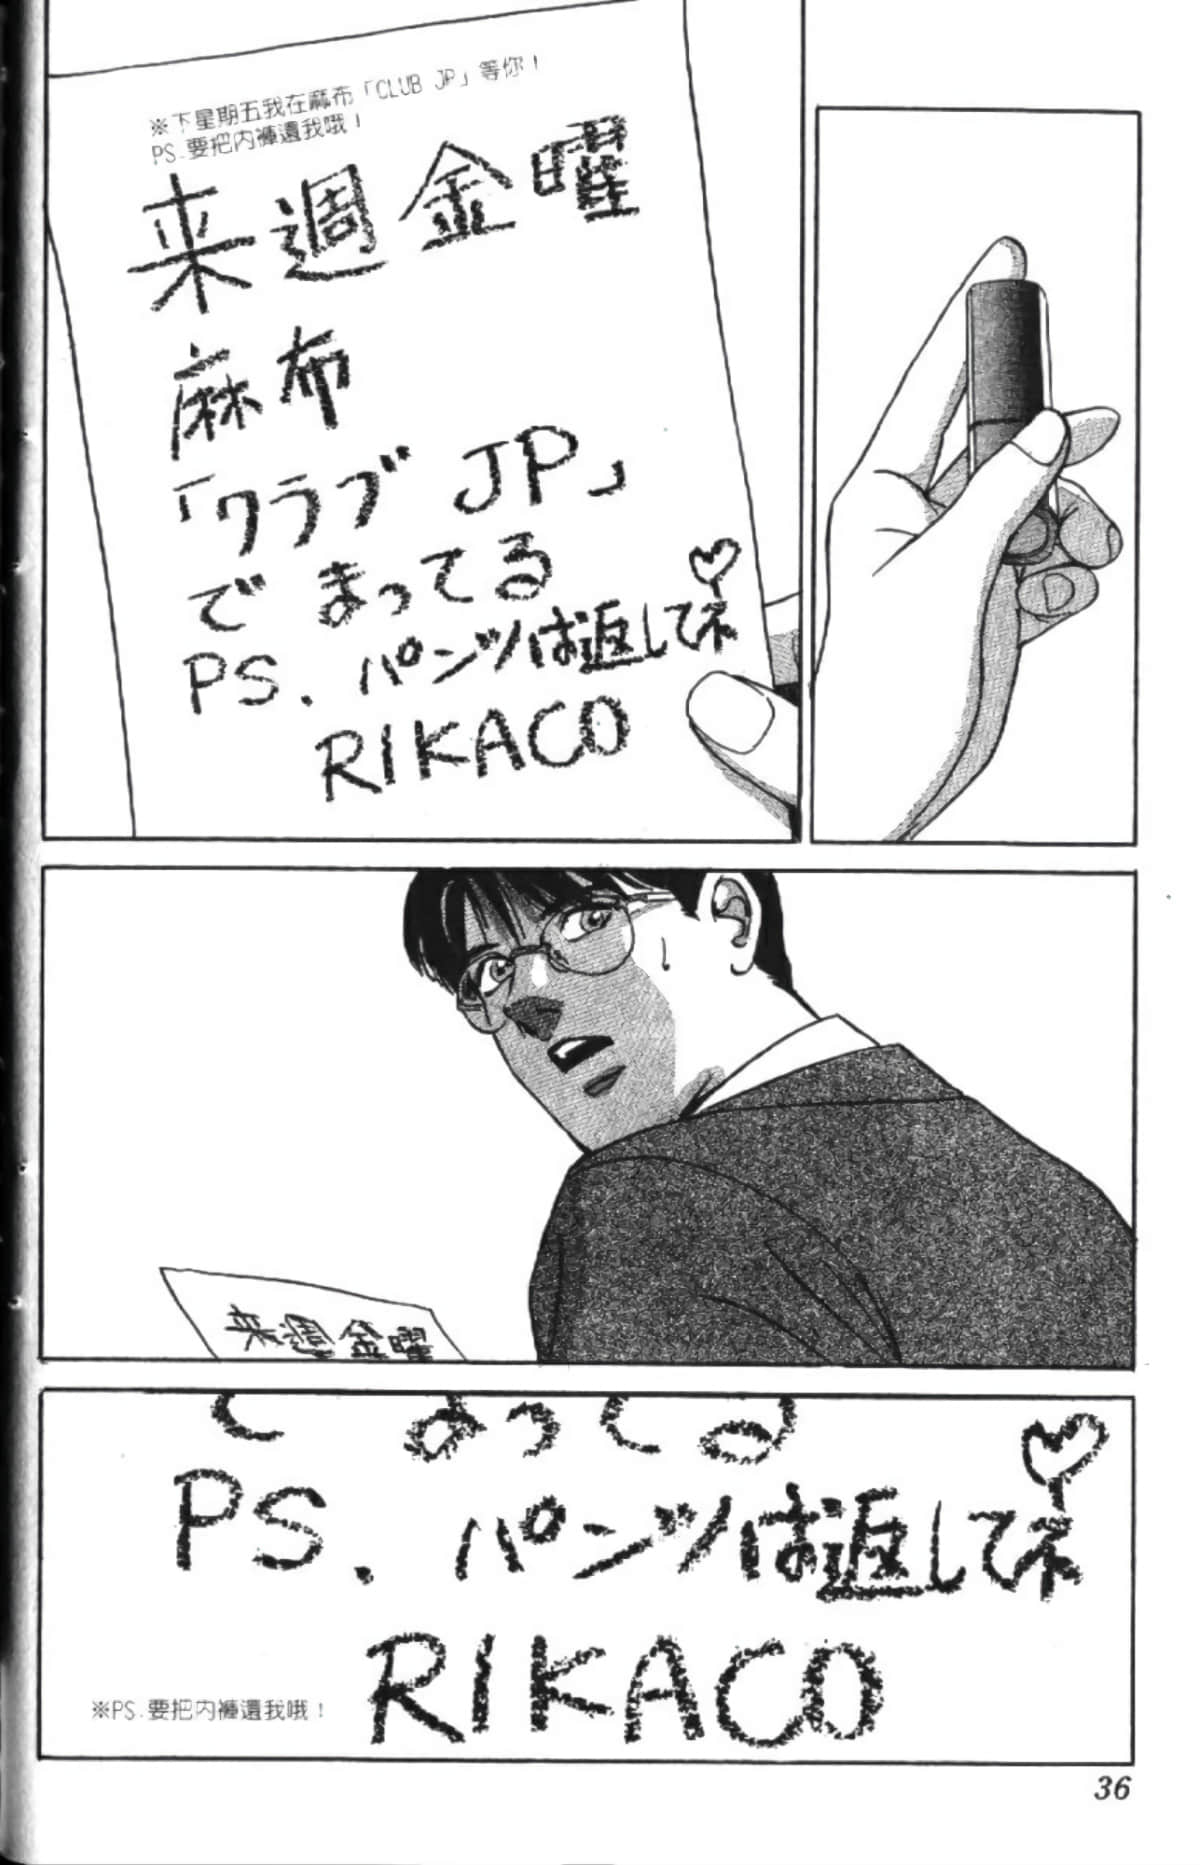 ※下星期五我在麻布「CLUB JP」等你！
PS.要把內褲還我哦！
来週金曜
麻布
「クラブ JP」
で まってる
PS. パンツは返してネ
RIKACO
来週金曜
で まってる
PS. パンツは返してネ
RIKACO
※PS.要把內褲還我哦！
36